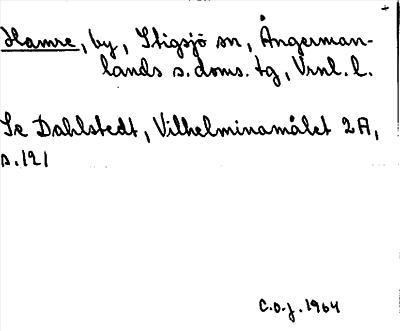 Hamre, by, Stigsjö sn, Ångerman-
lands s. doms. tg, Vrnl. l.
Se Dahlstedt, Vilhelminamålet 2A,
s. 121
C.O.J. 1964